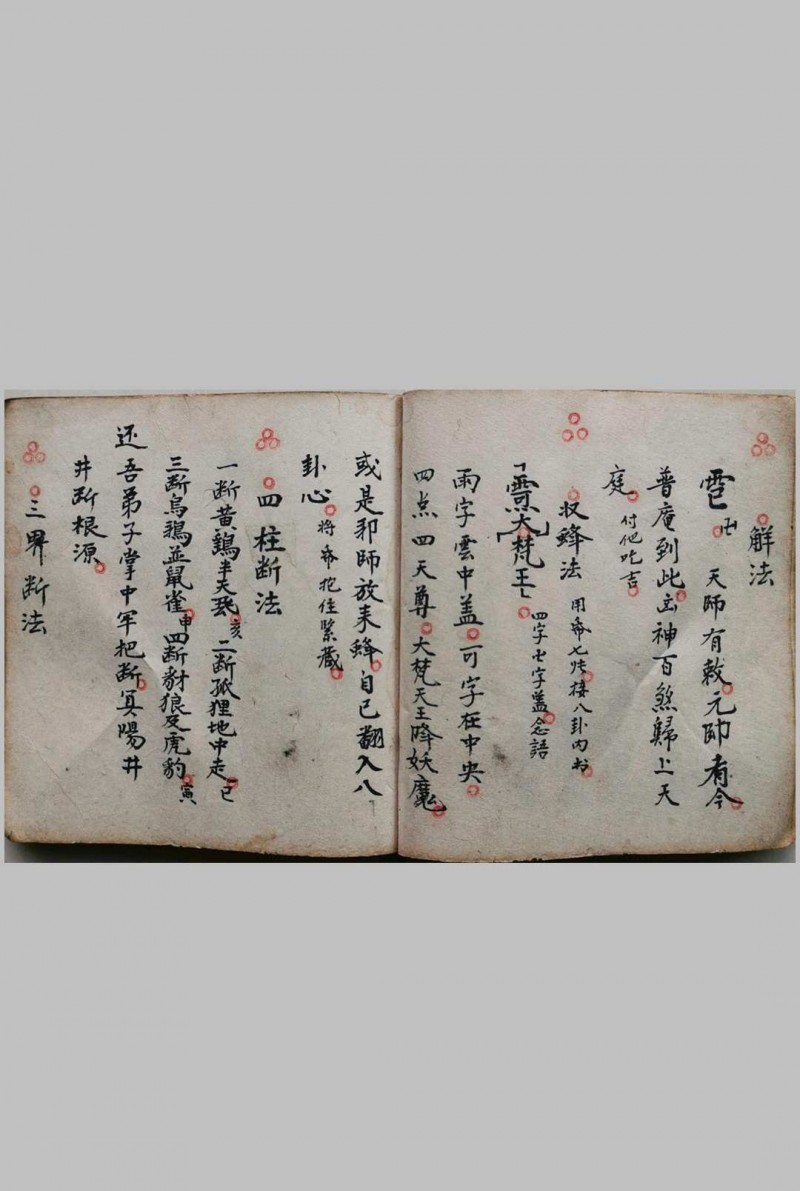 解法
卍 天師有敕元帥有令
普庵到此凶神百煞歸上天
庭 付他吃吉
收蜂法 用布七 接八卦内书
大梵王 四字七字盖念語
雨字雲中盖可字在中央
四点四天尊大梵天王降妖魔
或是邪師放来蜂自己翻入八
卦心 将布抱住緊藏
四柱断法
一断黄鷂半天飛亥二断狐狸地中走巳
三断烏鴉並鼠雀申四断豺狼及虎豹寅
还吾弟子掌中军把断冥陽井
井断根源
三界断法